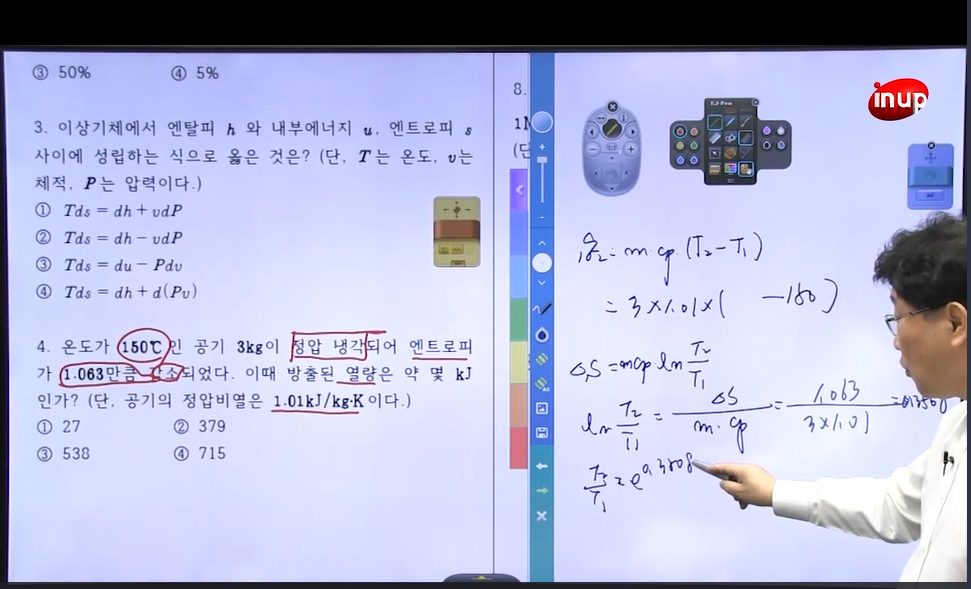 ③ 50% ④ 5%
3. 이상기체에서 엔탈피 h 와 내부에너지 u, 엔트로피 s
사이에 성립하는 식으로 옳은 것은? (단, T는 온도, v는
체적, P는 압력이다.)
① Tds = dh + vdP
② Tds = dh − vdP
③ Tds = du − Pdv
④ Tds = dh + d(Pv)
4. 온도가 150℃인 공기 3kg이 정압 냉각되어 엔트로피
가 1.063만큼 감소되었다. 이때 방출된 열량은 약 몇 kJ
인가? (단, 공기의 정압비열은 1.01kJ/kg·K이다.)
① 27 ② 379
③ 538 ④ 715
8.
(단
EJ-Pen
inup
₁q₂ = m·cp·(T₂−T₁)
= 3×1.01×( −150)
ΔS = mcp ln T₂/T₁
ln T₂/T₁ = ΔS/m·cp = 1.063/3×1.01